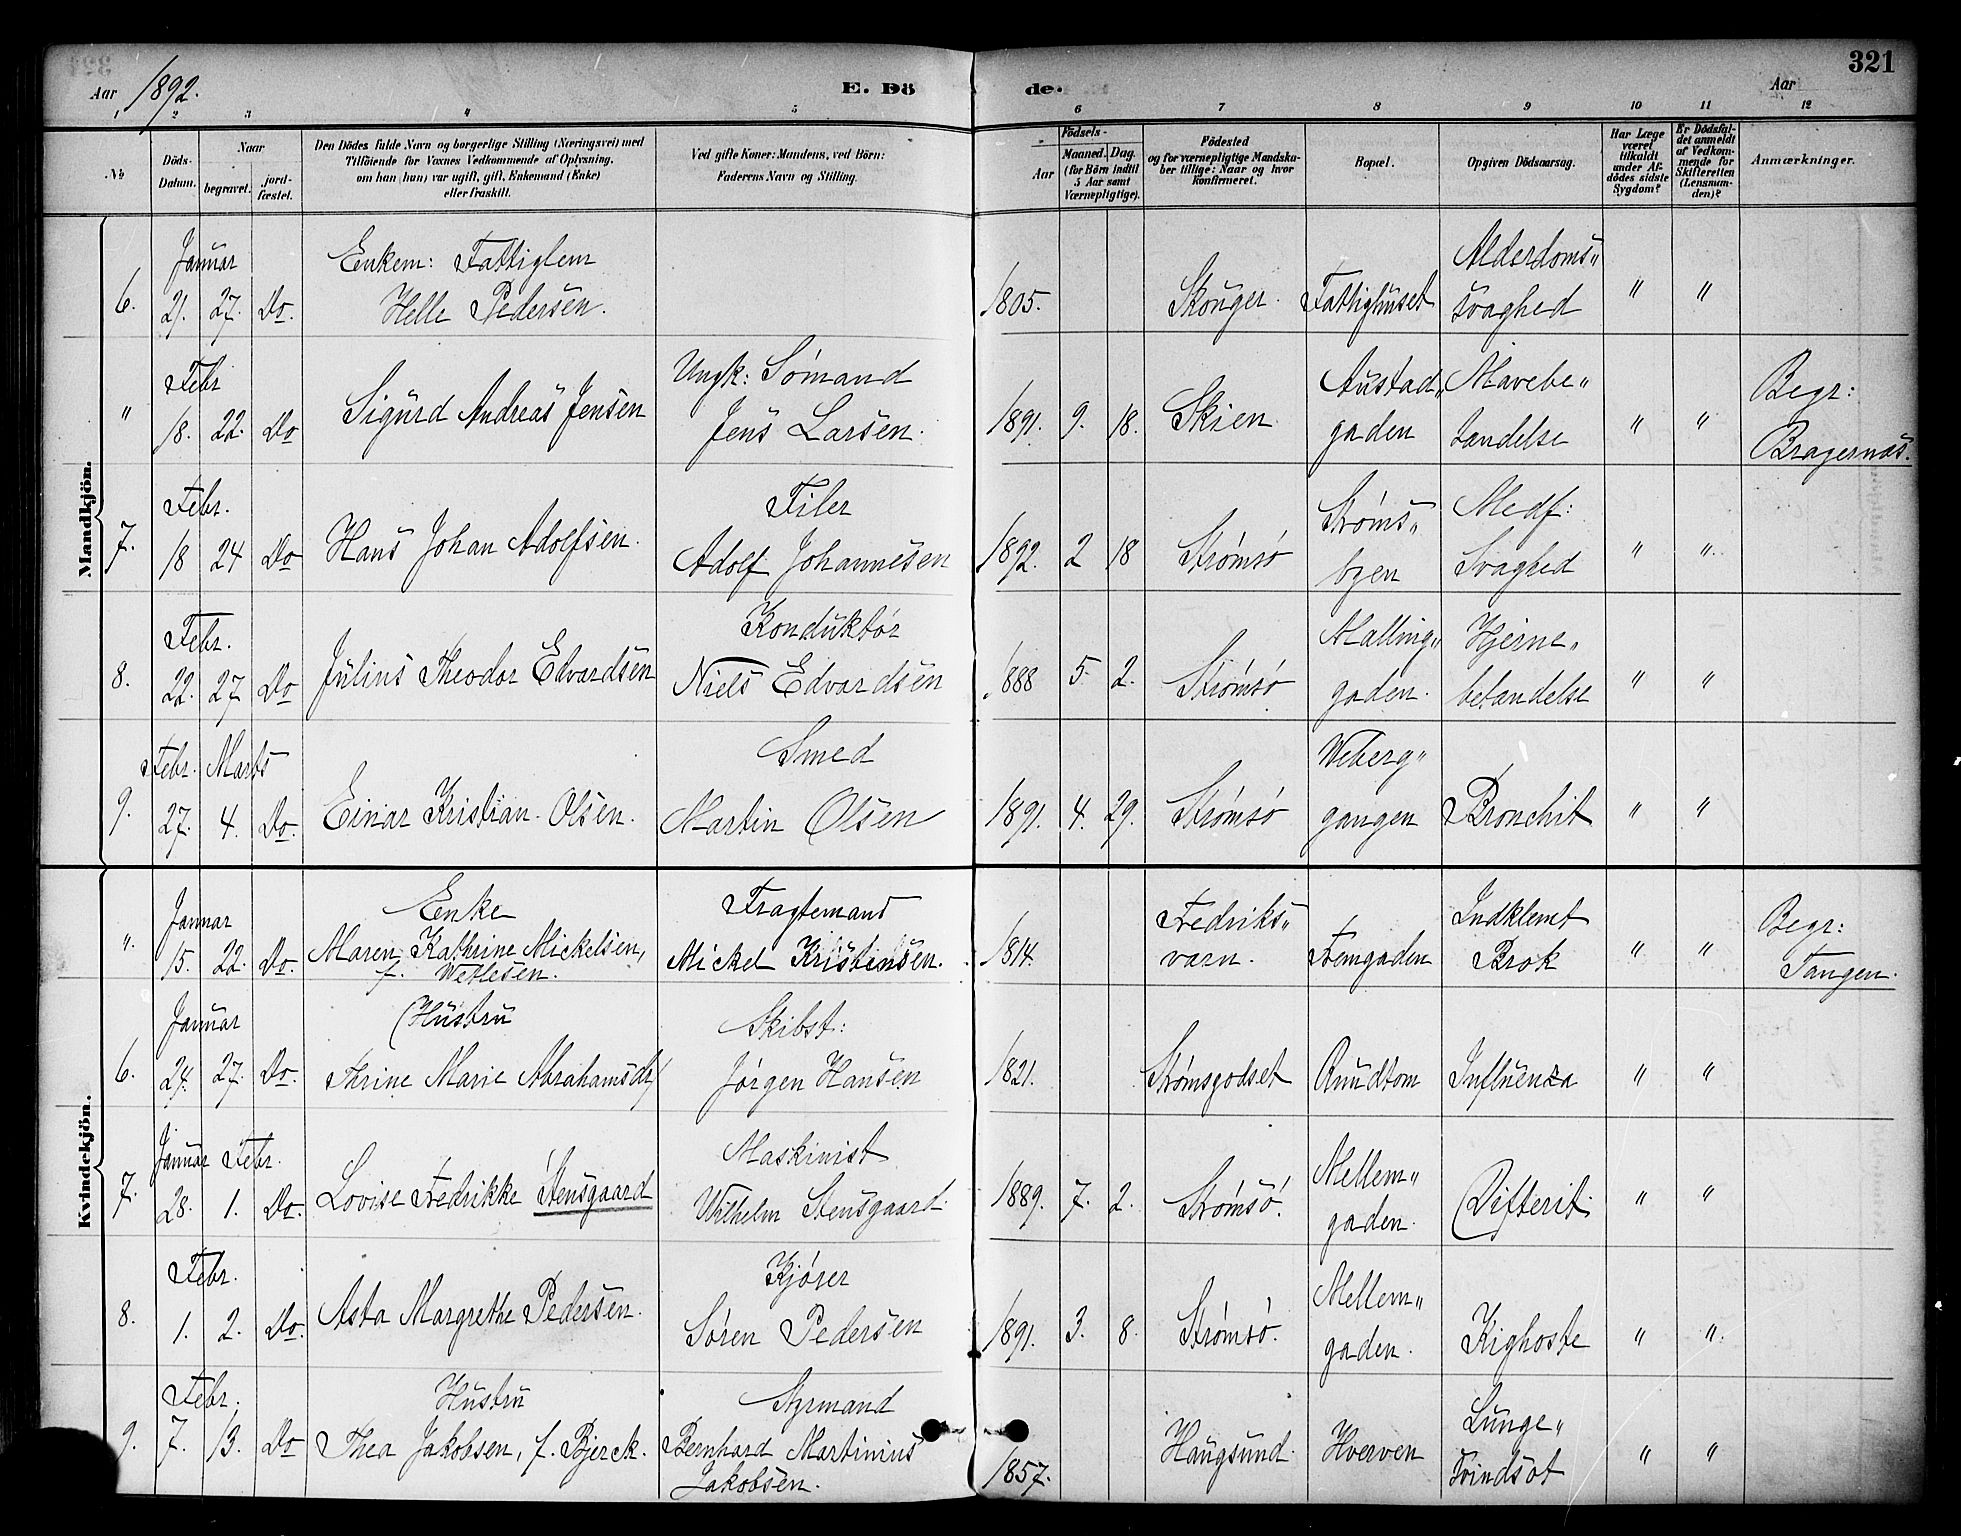 321
Aar 1892. E. Dö de. Aar
1 2 3 4 5 6 7 8 9 10 11 12
No
Döds-Datum.
Naar
begravet.
jord-fæstet.
Den Dödes fulde Navn og borgerlige Stilling (Næringsvei) med
Tilföiende for Voxnes Vedkommende af Oplysning,
om han (hun) var ugift, gift, Enkemand (Enke)
eller fraskilt.
Ved gifte Koner: Mandens, ved Börn:
Faderens Navn og Stilling.
Födsels-
Aar
Maaned.
Dag.
(for Börn indtil
5 Aar samt
Værnepligtige).
Födested
og for værnepligtige Mandska-
ber tillige: Naar og hvor
konfirmeret.
Bopæl.
Opgiven Dödsaarsag.
Har Læge
været
tilkaldt
under Af-
dödes sidste
Sygdom?
Er Dödsfal-
det anmeldt
af Vedkom-
mende for
Skifteretten
(Lensman-
den)?
Anmærkninger.
Mandkjön.
Januar Enkem: Fattiglem Alderdoms„
6. 21. 27. Do. Helle Pedersen. 1805. Skouger. Fattighuset svaghed „ „
Febr Ungk: Sömand Austad„ Mavebe„ Begr:
„ 18. 22. Do Sigurd Andreas Jensen Jens Larsen. 1891. 9. 18. Skien gaden tændelse „ „ Bragernæs.
Febr. Filer Strøms„ Medf:
7. 18 24 Do Hans Johan Adolfsen. Adolf Johannesen 1892. 2 18 Strømsø byen Svaghed „ „
Febr. Konduktør Malling„ Hjerne„
8. 22. 27 Do Julius Theodor Edvardsen Niels Edvardsen 1888 5. 2. Strømsø gaden. betændelse „ „
Febr. Marts Smed Weberg„
9. 27. 4. Do. Einar Kristian Olsen. Martin Olsen 1891. 4. 29. Strømsø gangen Bronchit „ „
Kvindekjön.
Januar Enke Fragtemand Fredriks„ Indklemt Begr:
„. 15. 22. Do. Maren Kathrine Mickelsen, Mickel Kristensen. 1814. værn. Femgaden Brok „ „ Tangen.
f. Wetlesen.
Januar Hustru Skibst:
6. 24. 27. Do. Thrine Marie Abrahamsdr/ Jørgen Hansen 1821. Strømsgodset Rundtom Influenza „ „
Januar Febr. Maskinist Mellem„
7. 28. 1. Do. Lovise Fredrikke Stensgaard Wilhelm Stensgaard. 1889. 7. 2. Strømsö. gaden. Difterit. „ „
Febr. Kjører Mellem„
8. 1. 2. Do. Asta Margrethe Pedersen. Søren Pedersen 1891. 3. 8. Strømsö. gaden. Kighoste „ „
Febr. Hustru Styrmand Lunge„
9. 7. 13. Do Thea Jakobsen, f. Bjerck. Bernhard Martinius 1857. Haugsund. Hverven svindsot „ „
Jakobsen.